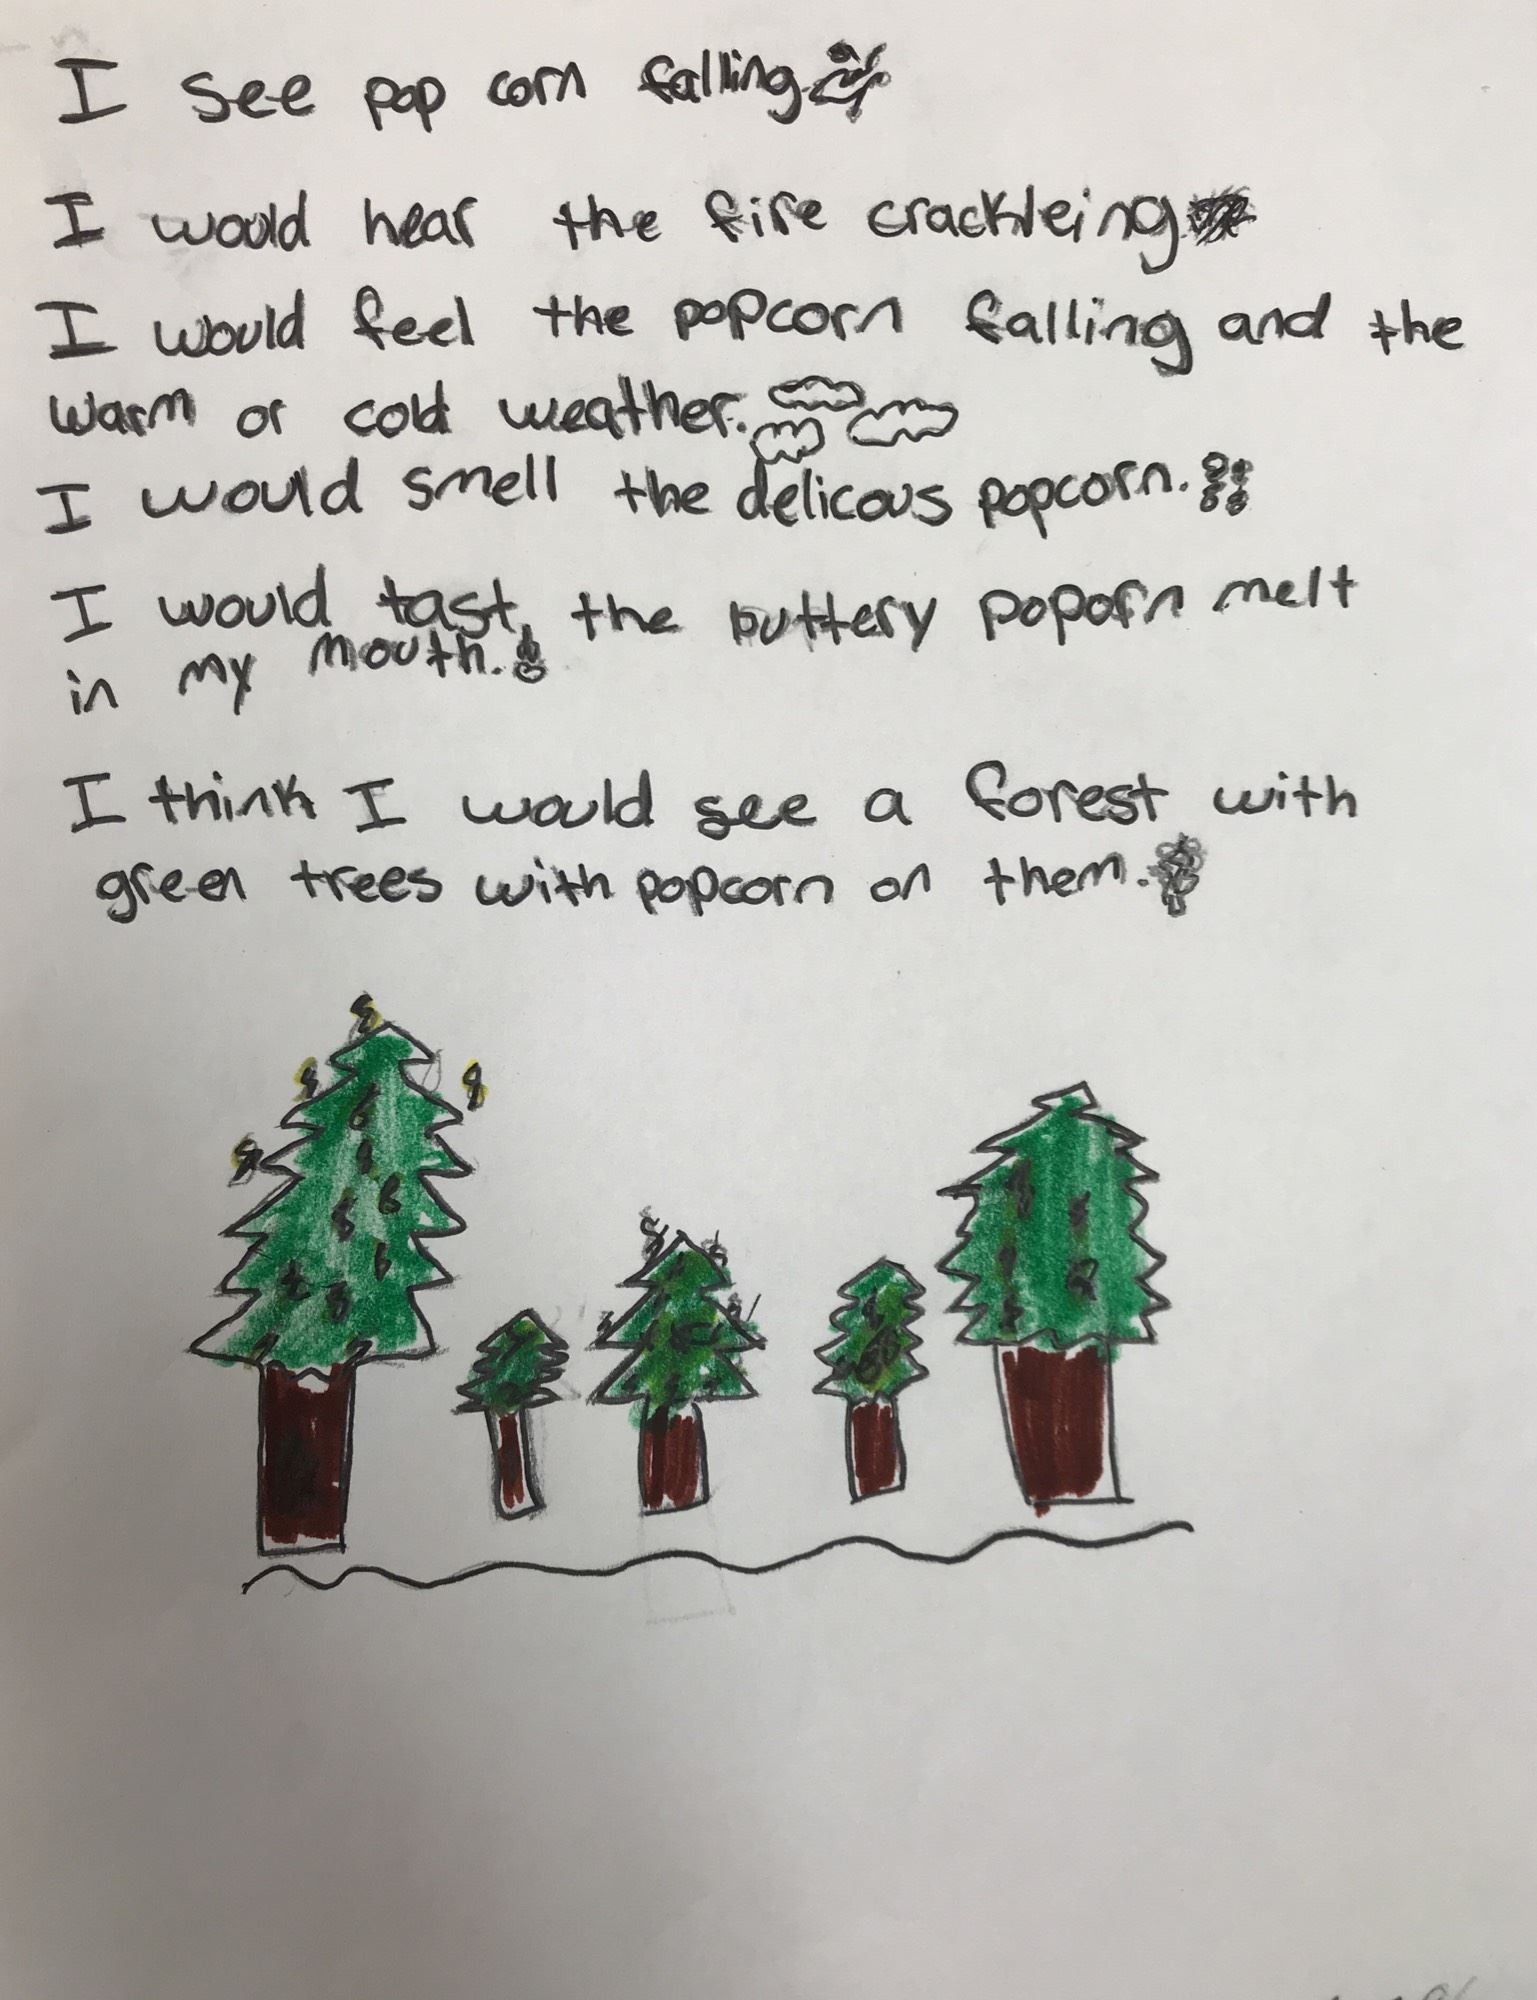 I see pop corn falling
I would hear the fire crackleing
I would feel the popcorn falling and the
warm or cold weather.
I would smell the delicous popcorn.
I would tast the buttery poporn melt
in my mouth.
I think I would see a forest with
green trees with popcorn on them.